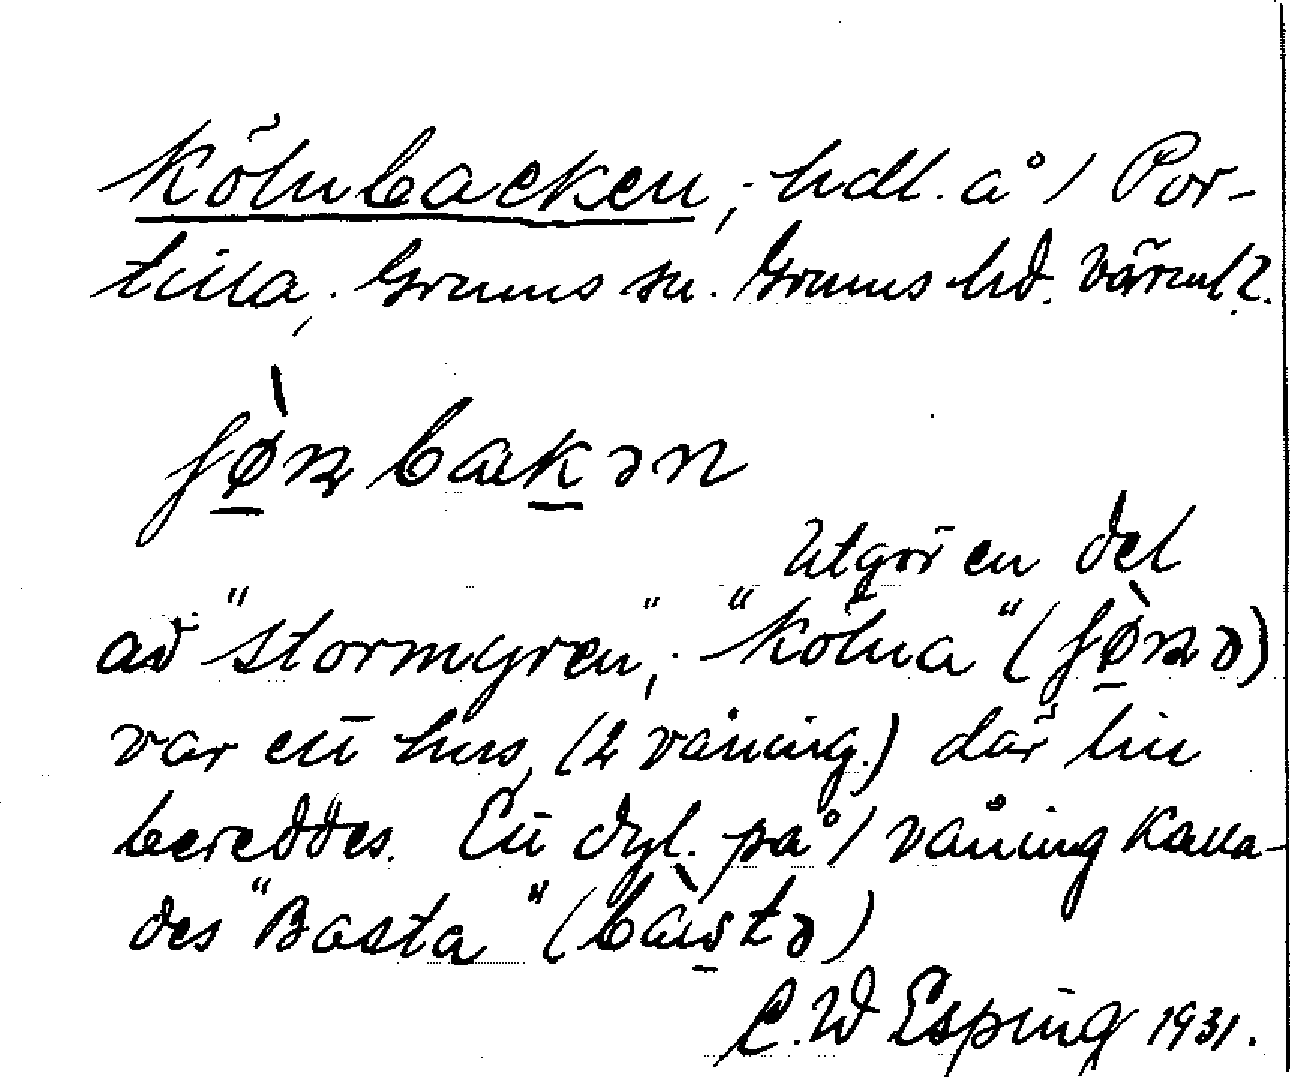 Kölnbacken, hdl. å / Por-
tilla, Grums sn. Grums hd. Värml.
Utgör en del
av "Stormyren", "Kölna" (
var ett hus, (2 våning.) där lin
bereddes. Ett dyl. på / våning kalla-
des "Basta" (
C. W Esping 1931.